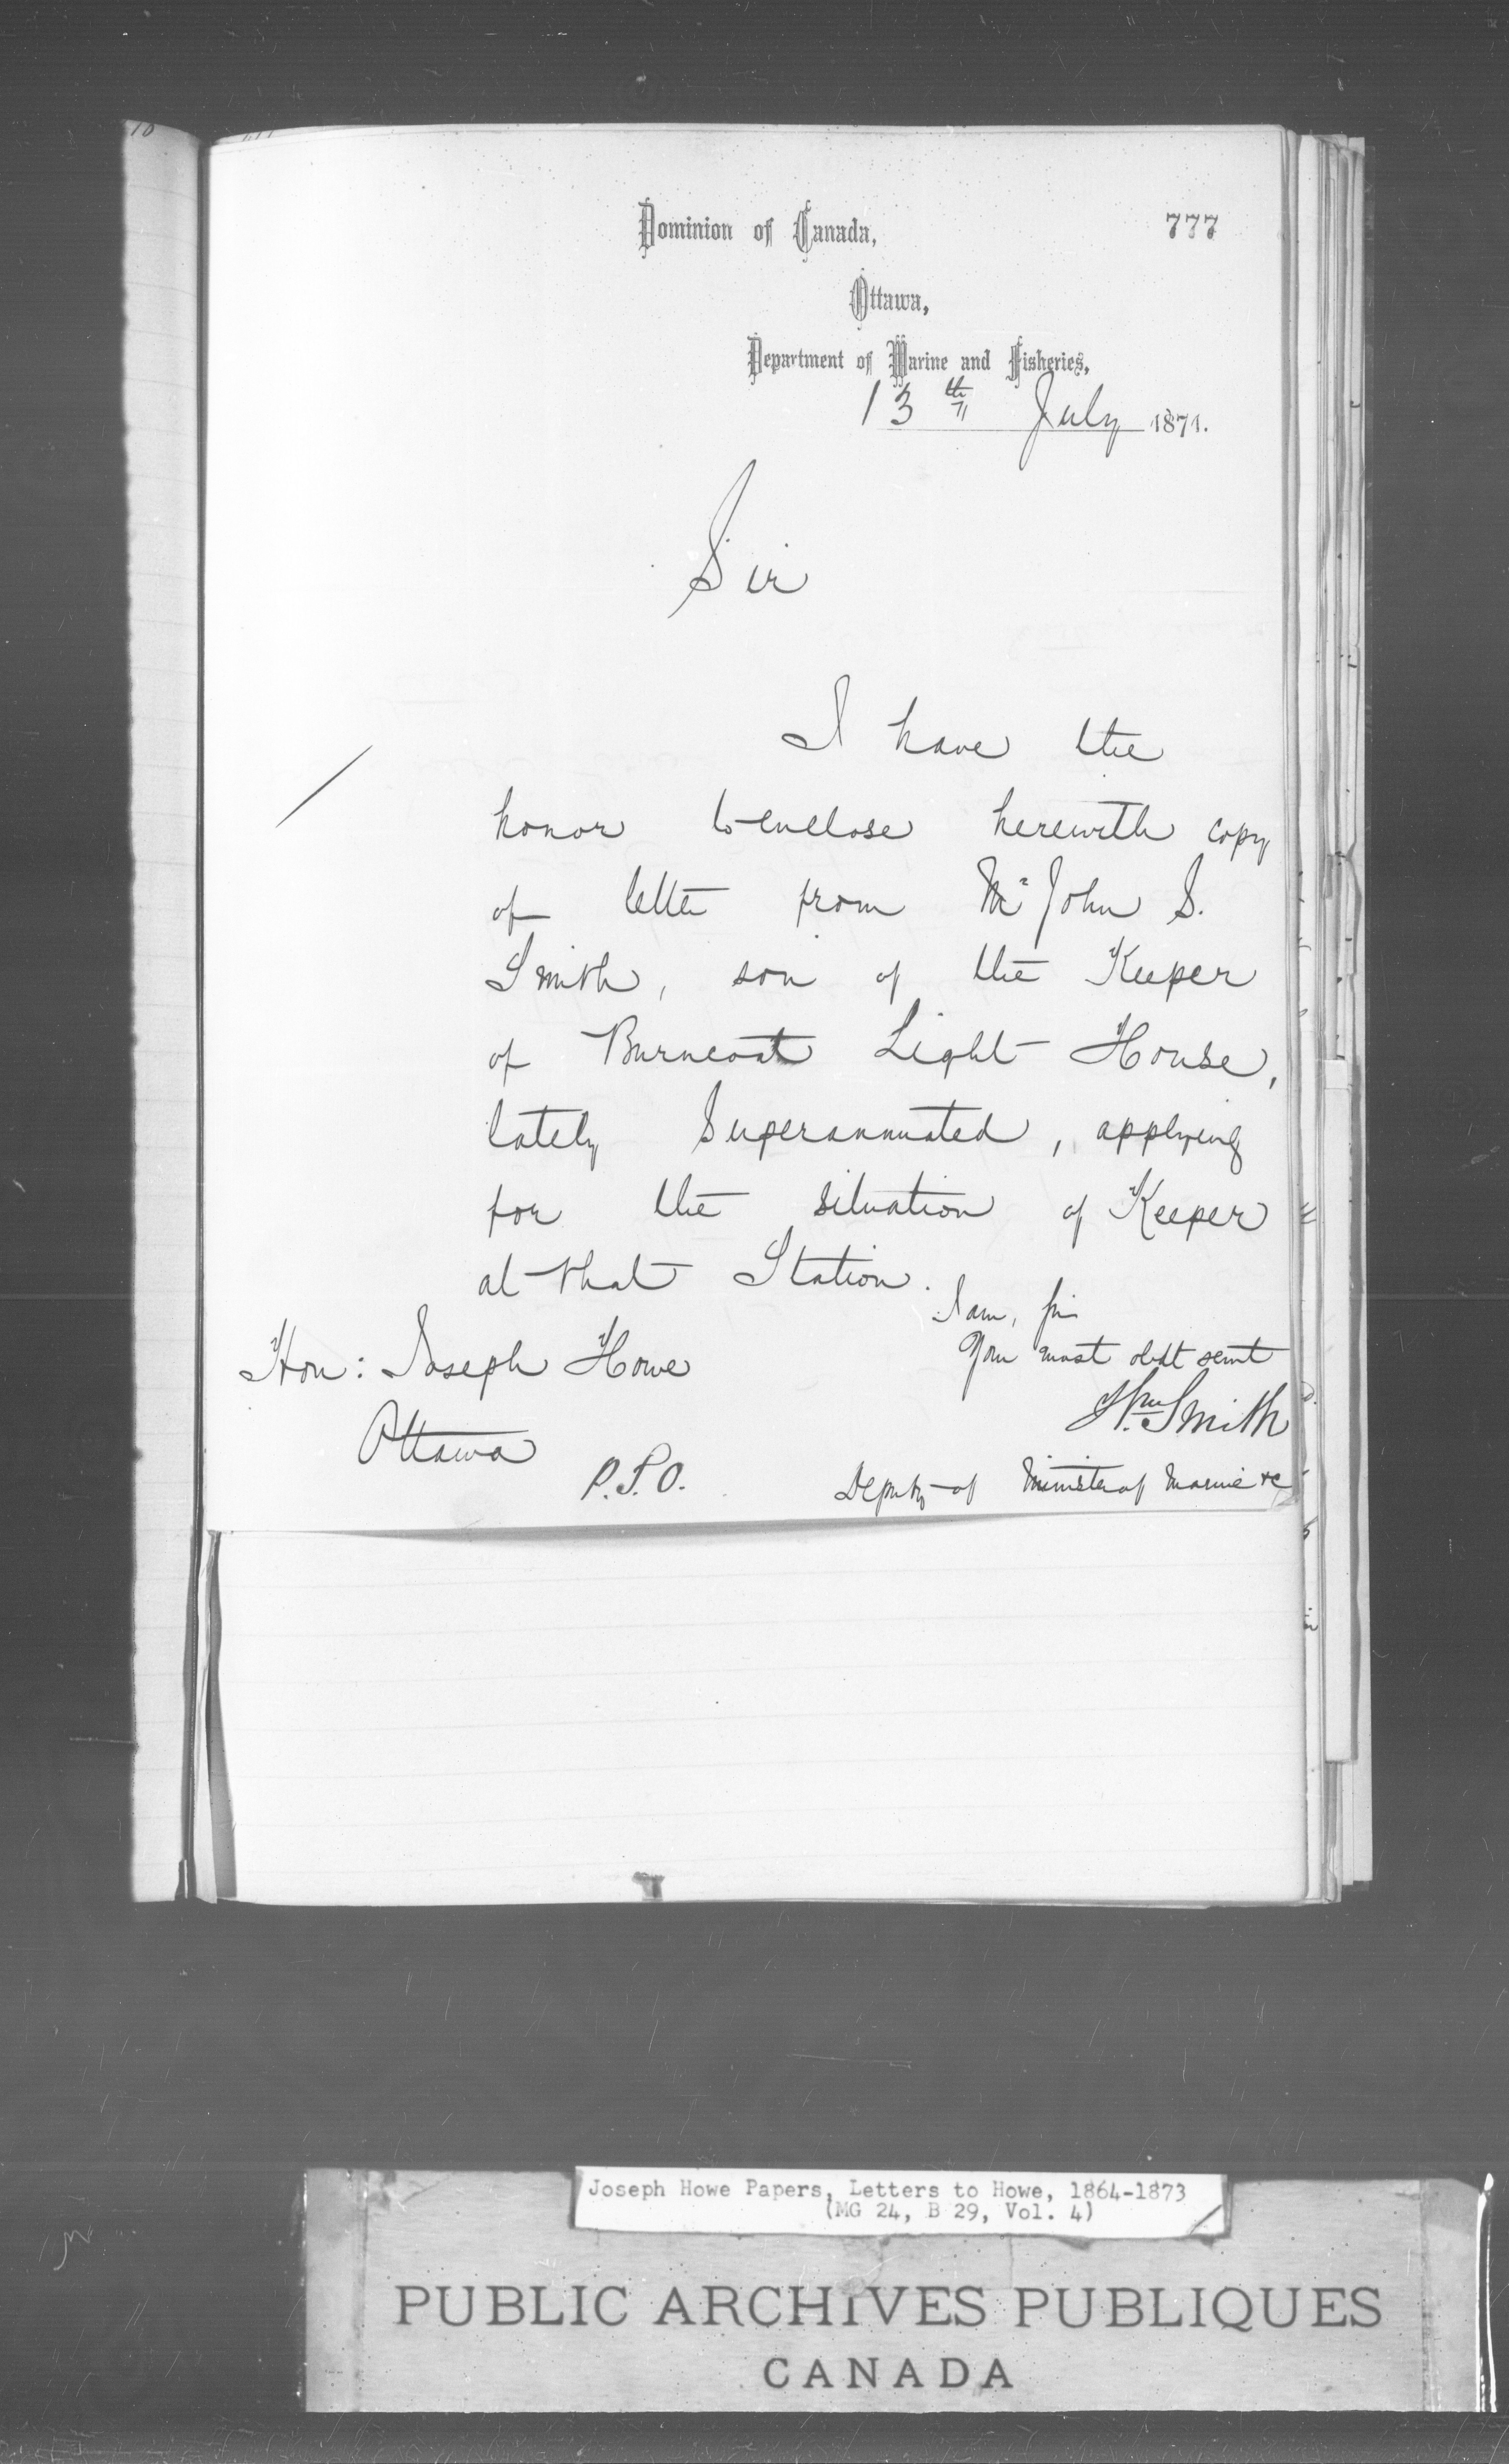 777
Dominion of Canada,
Ottawa,
Department of Marine and Fisheries,
13th July 1871.
Sir
I have the
honor to enclose herewith copy
of letter from Mr John S.
Smith, son of the Keeper
of Burncoat Light House,
lately Superannuated, applying
for the situation of Keeper
at that Station.
I am, Sir
Your most obdt servt
Wm Smith
Deputy of Minister of Marine &c
Hon: Joseph Howe
Ottawa
P.S.O.
Joseph Howe Papers, Letters to Howe, 1864-1873
(MG 24, B 29, Vol. 4)
PUBLIC ARCHIVES PUBLIQUES
CANADA